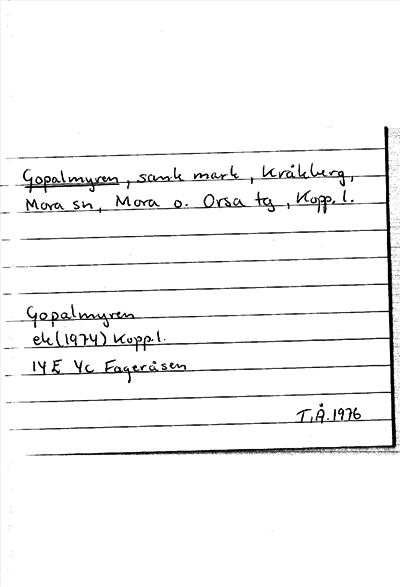 Gopalmyren, sank mark, Kråkberg,
Mora sn, Mora o. Orsa tg, Kopp. l.
Gopalmyren
ek (1974) Kopp.l.
14 E 4c Fageråsen
T.Å. 1976